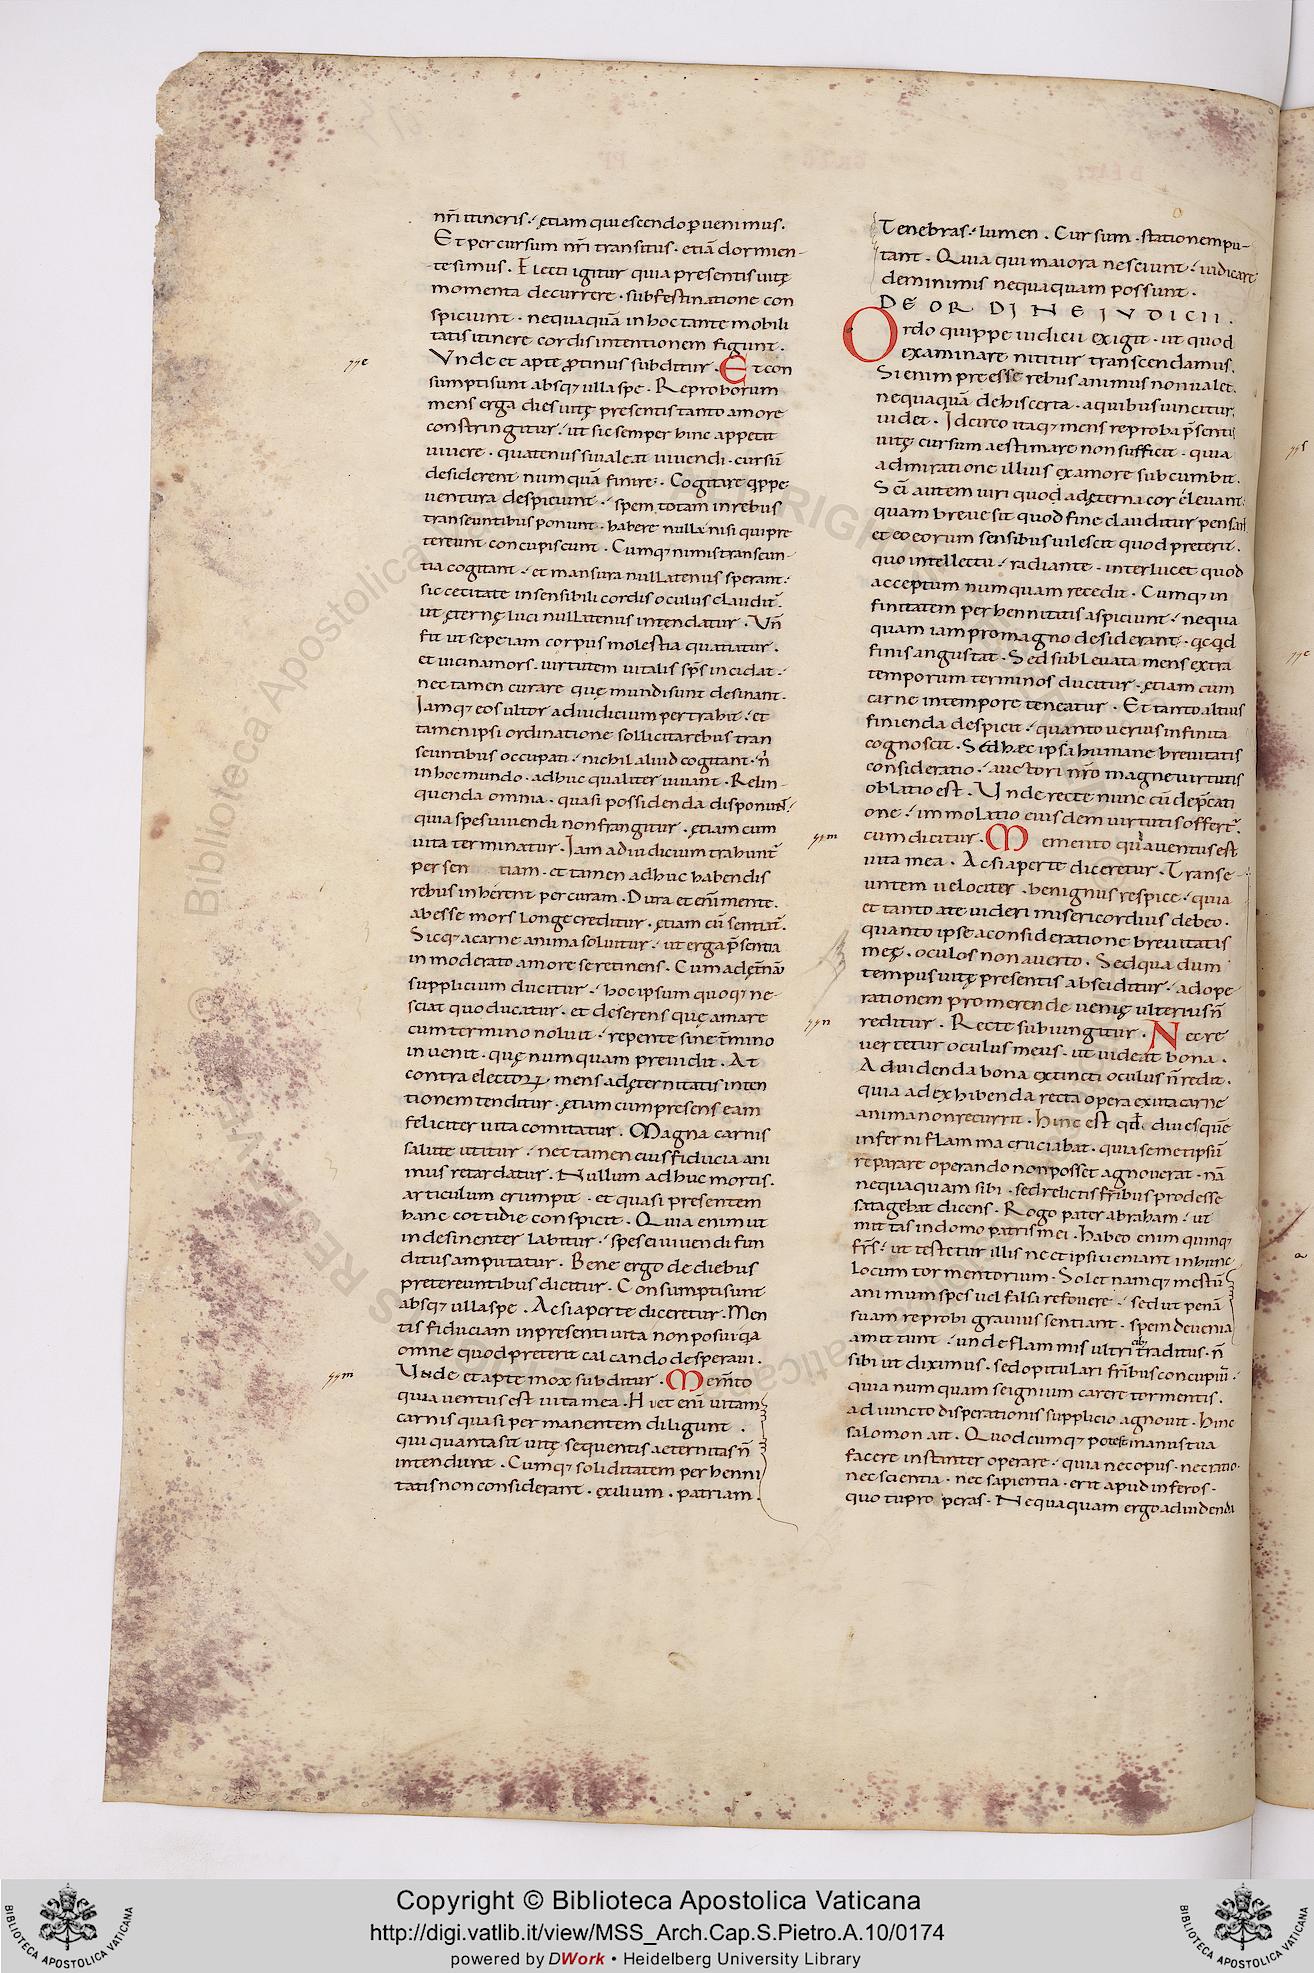 nr̄i itineris · ętiam quiescendo ꝑuenimus ·
Et per cursum nr̄i transitus · etiā dormien-
tes imus · Electi igitur quia presentis uitę
momenta decurrere · sub festinatione con
spiciunt · nequaquā in hoc tante mobili
tatis itinere cordis intentionem figunt ·
Vnde et apte ꝓtinus subditur · Et con
sumpti sunt absq; ulla spe · Reproborum
mens erga dies uitę presentis tanto amore
constringitur · ut sic semper hinc appetit
uiuere · quatenus si ualeat uiuendi · cursū
desiderent numquā finire · Cogitare q̄ppe
uentura despiciunt · spem totam in rebus
transeuntibus ponunt · habere nulla nisi qui pre
tereunt concupiscunt · Cumq; nimis transeun-
tia cogitant · et mansura nullatenus sperant ·
sic cecitate insensibili cordis oculus claudit̄ ·
ut ęternę luci nullatenus intendatur · Vn̄
fit ut sepe iam corpus molestia quatiatur ·
et uicina mors · uirtutem uitalis sp̄s incidat ·
nec tamen curare quę mundi sunt desinant ·
Iamq; eos ultor ad iudicium pertrahit · et
tamen ipsi ordinatione sollicita rebus tran
seuntibus occupati · nichil aliud cogitant · n̄
in hoc mundo · adhuc qualiter uiuant · Relin-
quenda omnia · quasi possidenda disponunt ·
quia spes uiuendi non frangitur · ętiam cum
uita terminatur · Iam ad iudicium trahunt̄
per sen tiam · et tamen adhuc habendis
rebus inherent per curam · Dura et eni mente ·
abesse mors longe creditur · ętiam cū sentiat̄ ·
Sicq; a carne anima soluitur · ut erga p̄sentia
inmoderato amore se retinens · Cum ad ęt̄nū
supplicium ducitur · hoc ipsum quoq; ne-
sciat quo ducatur · et deserens quę amare
cum termino noluit · repente sine t̄mino
inuenit · quę numquam preuidit · At
contra electoꝝ mens ad ęternitatis inten
tionem tenditur · ętiam cum presens eam
feliciter uita comitatur · Magna carnis
salute utitur · nec tamen eius fiducia ani
mus retardatur · Nullum adhuc mortis ·
articulum erumpit · et quasi presentem
hanc cottidie conspicit · Quia enim ut
indesinenter labitur · spes ei uiuendi fun
ditus amputatur · Bene ergo de diebus
pretereuntibus dicitur · Consumpti sunt
absq; ulla spe · Ac si aperte diceretur · Men
tis fiduciam in presenti uita non posui · q̄a
omne quod preterit calcando desperaui ·
Unde et apte mox subditur · Mem̄to
quia uentus est uita mea · Hi et eni uitam
carnis quasi permanentem diligunt ·
qui quanta sit uitę sequentis aeternitas n̄
intendunt · Cumq; soliditatem perhenni
tatis non considerant · exilium · patriam ·
Tenebras · lumen · Cursum · stationem pu-
tant · Quia qui maiora nesciunt · iudicare
de minimis nequaquam possunt ·
DE ORDINE IVDICII ·
Ordo quippe iudicii exigit · ut quod
examinare nititur transcendamus ·
Si enim preesse rebus animus non ualet ·
nequaquā de his certa · a quibus uincitur ·
uidet · Idcirco itaq; mens reproba p̄sentis
uitę cursum aestimare non sufficit · quia
admiratione illius ex amore subcumbit ·
Sc̄i autem uiri quod ad ęterna cor eleuant ·
quam breue sit quod fine clauditur pensant
et eo eorum sensibus uilescit quod preterit ·
quo intellectu · radiante · interlucet quod
acceptum numquam recedit · Cumq; in
finitatem perhennitatis aspiciunt · nequa
quam iam pro magno desiderant · qcqd
finis angustat · Sed subleuata mens extra
temporum terminos ducitur · ętiam cum
carne in tempore teneatur · Et tanto altius
finienda despicit · quanto uerius infinita
cognoscit · Sed haec ipsa humane breuitatis
consideratio · auctori nr̄o magne uirtutis
oblatio est · Vnde recte nunc cū dep̄cati
one · immolatio eiusdem uirtutis offert̄ ·
cum dicitur · Memento quia uentus est
uita mea · Ac si aperte diceretur · Transe-
untem uelociter · benignus respice · quia
et tanto a te uideri misericordius debeo ·
quanto ipse a consideratione breuitatis
meę · oculos non auerto · Sed qua dum
tempus uitę presentis absciditur · ad ope
rationem promerende uenię ulterius n̄
reditur · Recte subiungitur · Nec re
uertetur oculus meus · ut uideat bona ·
Ad uidenda bona extincti oculus n̄ redit ·
quia ad exhibenda recta opera exuta carne
anima non recurrit · Hinc est qd̄ · diues quē
inferni flamma cruciabat · quia semetipsū
reparare operando non posset agnouerat · nā
nequaquam sibi · sed relictis fr̄ibus prodesse
satagebat dicens · Rogo pater abraham · ut
mittas in domo patris mei · Habeo enim quinq;
fr̄s · ut testetur illis ne et ipsi ueniant in hunc
locum tormentorium · Solet namq; mestū
animum spes uel falsa refouere · sed ut penā
suam reprobi grauius sentiant · spem de uenia
amittunt · unde flammis ultricib; traditus · n̄
sibi ut diximus · sed opitulari fr̄ibus concupiū ·
quia numquam se ignium carere tormentis ·
adiuncto disperationis supplicio agnouit · Hinc
salomon ait · Quodcumq; potest manus tua
facere instanter operare · quia nec opus · nec ratio ·
nec scientia · nec sapientia · erit apud inferos ·
quo tu pro peras · Nequaquam ergo ad uidenda
Copyright © Biblioteca Apostolica Vaticana
http://digi.vatlib.it/view/MSS_Arch.Cap.S.Pietro.A.10/0174
powered by DWork • Heidelberg University Library